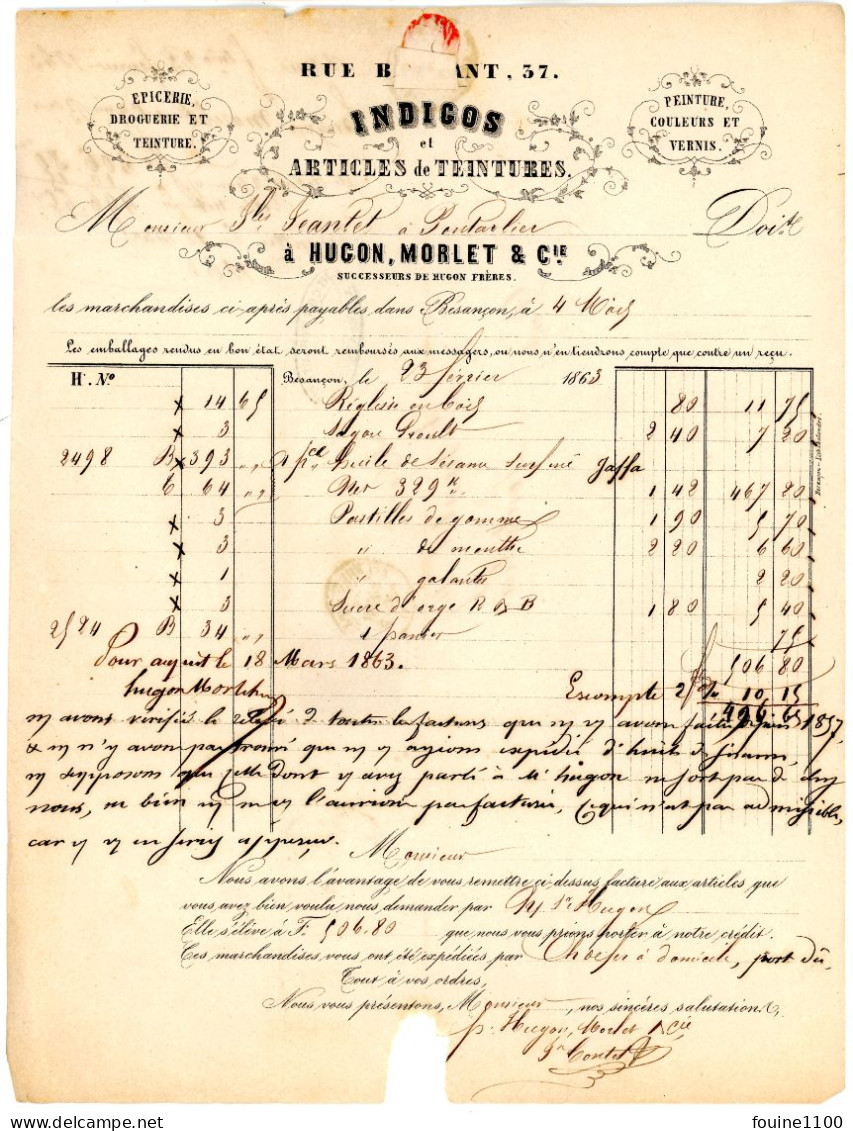 RUE B ANT, 37.
EPICERIE,
DROGUERIE ET
TEINTURE.
INDIGOS
et
ARTICLES de TEINTURES.
PEINTURE,
COULEURS ET
VERNIS.
Monsieur Jeantet à Pontarlier Doit
à HUGON, MORLET & CIE
SUCCESSEURS DE HUGON FRÈRES.
les marchandises ci-après payables dans Besançon, à 4 Mois
Les emballages rendus en bon état seront remboursés aux messagers, ou nous n'en tiendrons compte que contre un reçu.
H. No Besançon, le 23 février 1863
x 14 65 Réglisse en bois 80 11 75
x 3 2 40 7 20
2498 B x 393 " 1 pce huile de Sésame surfine Jaffa
C 64 " Net 329 k 1 42 467 20
x 3 Pastilles de gomme 1 90 5 70
x 3 " de menthe 2 20 6 60
x 1 " galantes 2 20
x 3 Sucre d'orge R & B 1 80 5 40
2524 B 34 " 1 panier 75
506 80
Pour acquit le 18 Mars 1863.
Hugon Morlet Escompte 2 % 10 15
496 65
avons vérifié le relevé de toutes les factures que avons faites depuis 1857,
& n'avons pas trouvé que ayions expédié d'huile de
supposons que celle dont avez parlé à Mr Hugon ne sort pas de chez
nous, ou bien l'aurions pas facturée, ce qui n'est pas admissible,
car
Monsieur
Nous avons l'avantage de vous remettre ci-dessus facture aux articles que
vous avez bien voulu nous demander par Sr Hugon
Elle s'élève à F. 506.80 que nous vous prions porter à notre crédit.
Ces marchandises vous ont été expédiées par à domicile, port dû.
Tout à vos ordres,
Nous vous présentons, Monsieur, nos sincères salutations,
p. Hugon, Morlet & cie
fouine1100